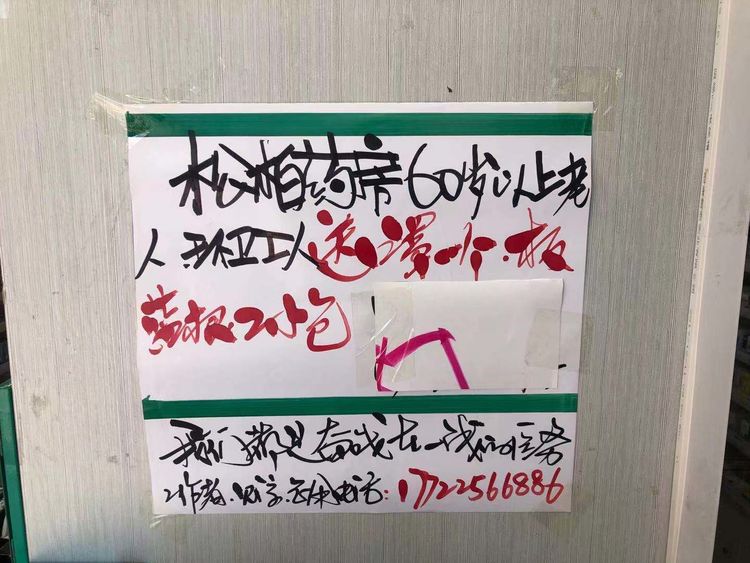 松柏药房60岁以上老
人.环卫工人送口罩1个.板
蓝根2小包
我们都是奋战在一线的医务
工作者.
电话:17722566886